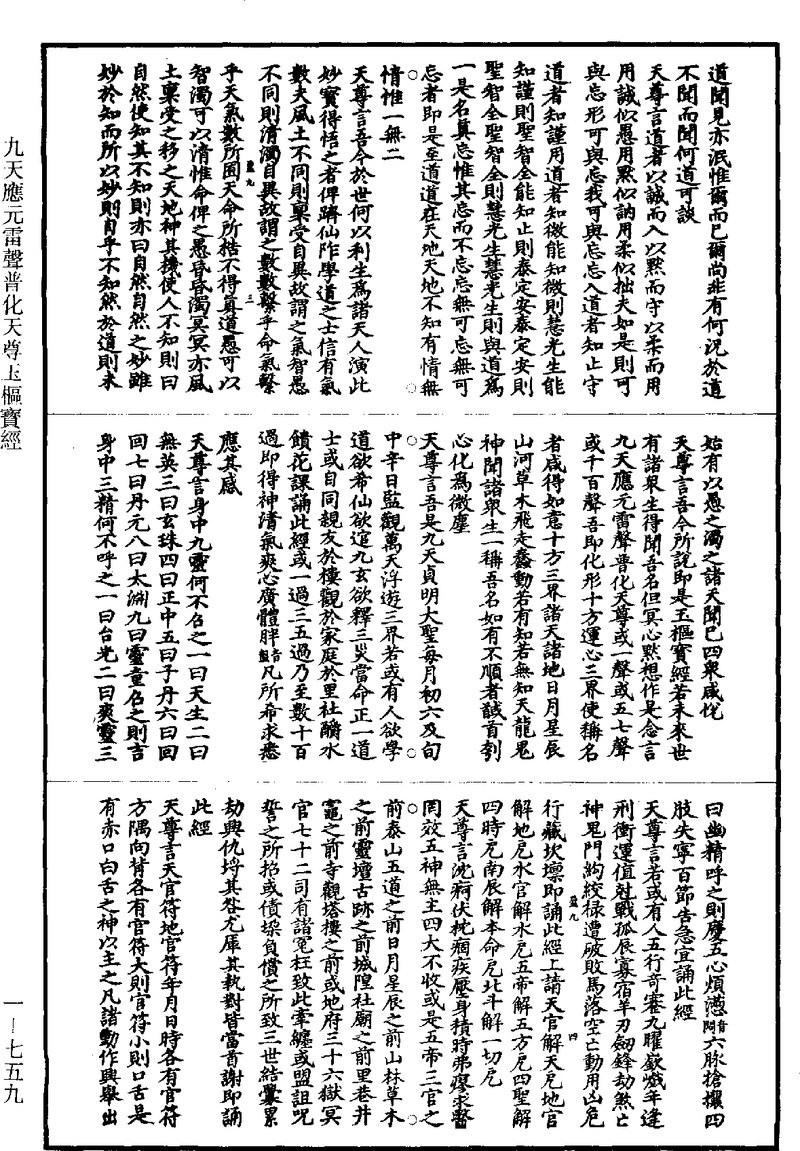 九天應元雷聲普化天尊玉樞寶經
一－七五九
道聞見亦泯惟爾而已爾尚非有何況於道
不聞而聞何道可談
天尊言道者以誠而入以默而守以柔而用
用誠似愚用默似訥用柔似拙夫如是則可
與忘形可與忘我可與忘忘入道者知止守
道者知謹用道者知微能知微則慧光生能
知謹則聖智全能知止則泰定安泰定安則
聖智全聖智全則慧光生慧光生則與道爲
一是名眞忘惟其忘而不忘忘無可忘無可
忘者即是至道道在天地天地不知有情無
情惟一無二
天尊言吾今於世何以利生爲諸天人演此
妙寶得悟之者俾躋仙阼學道之士信有氣
數夫風土不同則稟受自異故謂之氣智愚
不同則清濁自異故謂之數數繫乎命氣繫
乎天氣數所囿天命所梏不得眞道愚可以
智濁可以清惟命俾之愚昏昏濁冥冥亦風
土稟受之移之天地神其機使人不知則曰
自然使知其不知則亦曰自然自然之妙雖
妙於知而所以妙則自乎不知然於道則未
始有以愚之濁之諸天聞已四衆咸悅
天尊言吾今所說即是玉樞寶經若未來世
有諸衆生得聞吾名但冥心默想作是念言
九天應元雷聲普化天尊或一聲或五七聲
或千百聲吾即化形十方運心三界使稱名
者咸得如意十方三界諸天諸地日月星辰
山河草木飛走蠢動若有知若無知天龍鬼
神聞諸衆生一稱吾名如有不順者馘首刳
心化爲微塵
天尊言吾是九天貞明大聖每月初六及旬
中辛日監觀萬天浮遊三界若或有人欲學
道欲希仙欲逭九玄欲釋三災當命正一道
士或自同親友於樓觀於家庭於里社酹水
饋花課誦此經或一過三五過乃至數十百
過即得神清氣爽心廣體胖凡所希求悉
應其感
天尊言身中九靈何不召之一曰天生二曰
無英三曰玄珠四曰正中五曰子丹六曰回
回七曰丹元八曰太淵九曰靈童召之則吉
身中三精何不呼之一曰台光二曰爽靈三
曰幽精呼之則慶五心煩懣六脉搶攘四
肢失寧百節告急宜誦此經
天尊言若或有人五行奇蹇九曜嶔巇年逢
刑衝運值尅戰孤辰寡宿羊刃劍鋒劫煞亡
神鬼門鈎絞祿遭破敗馬落空亡動用凶危
行藏坎壈即誦此經上請天官解天厄地官
解地厄水官解水厄五帝解五方厄四聖解
四時厄南辰解本命厄北斗解一切厄
天尊言沈痾伏枕痼疾壓身積時弗瘳求醫
罔效五神無主四大不收或是五帝三官之
前泰山五道之前日月星辰之前山林草木
之前靈壇古跡之前城隍社廟之前里巷井
竈之前寺觀塔樓之前或地府三十六獄冥
官七十二司有諸冤枉致此牽纏或盟詛呪
誓之所招或債垜負償之所致三世結釁累
劫興仇埒其咎尤厙其執對皆當首謝即誦
此經
天尊言天官符地官符年月日時各有官符
方隅向背各有官符大則官符小則口舌是
有赤口白舌之神以主之凡諸動作興舉出